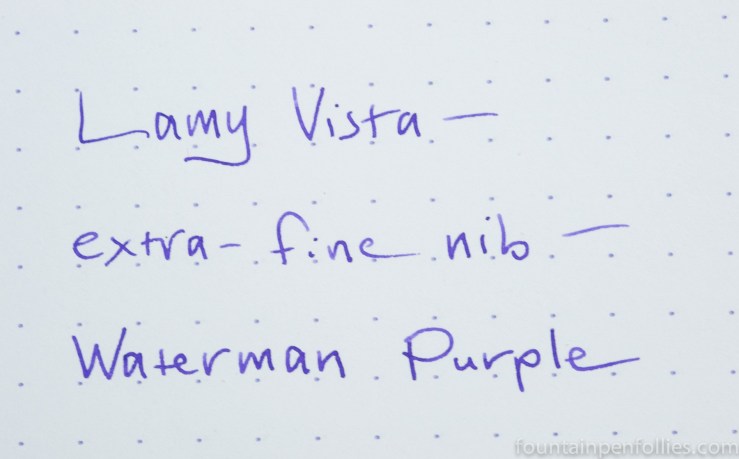 Lamy Vista —
extra-fine nib —
Waterman Purple
fountainpenfollies.com